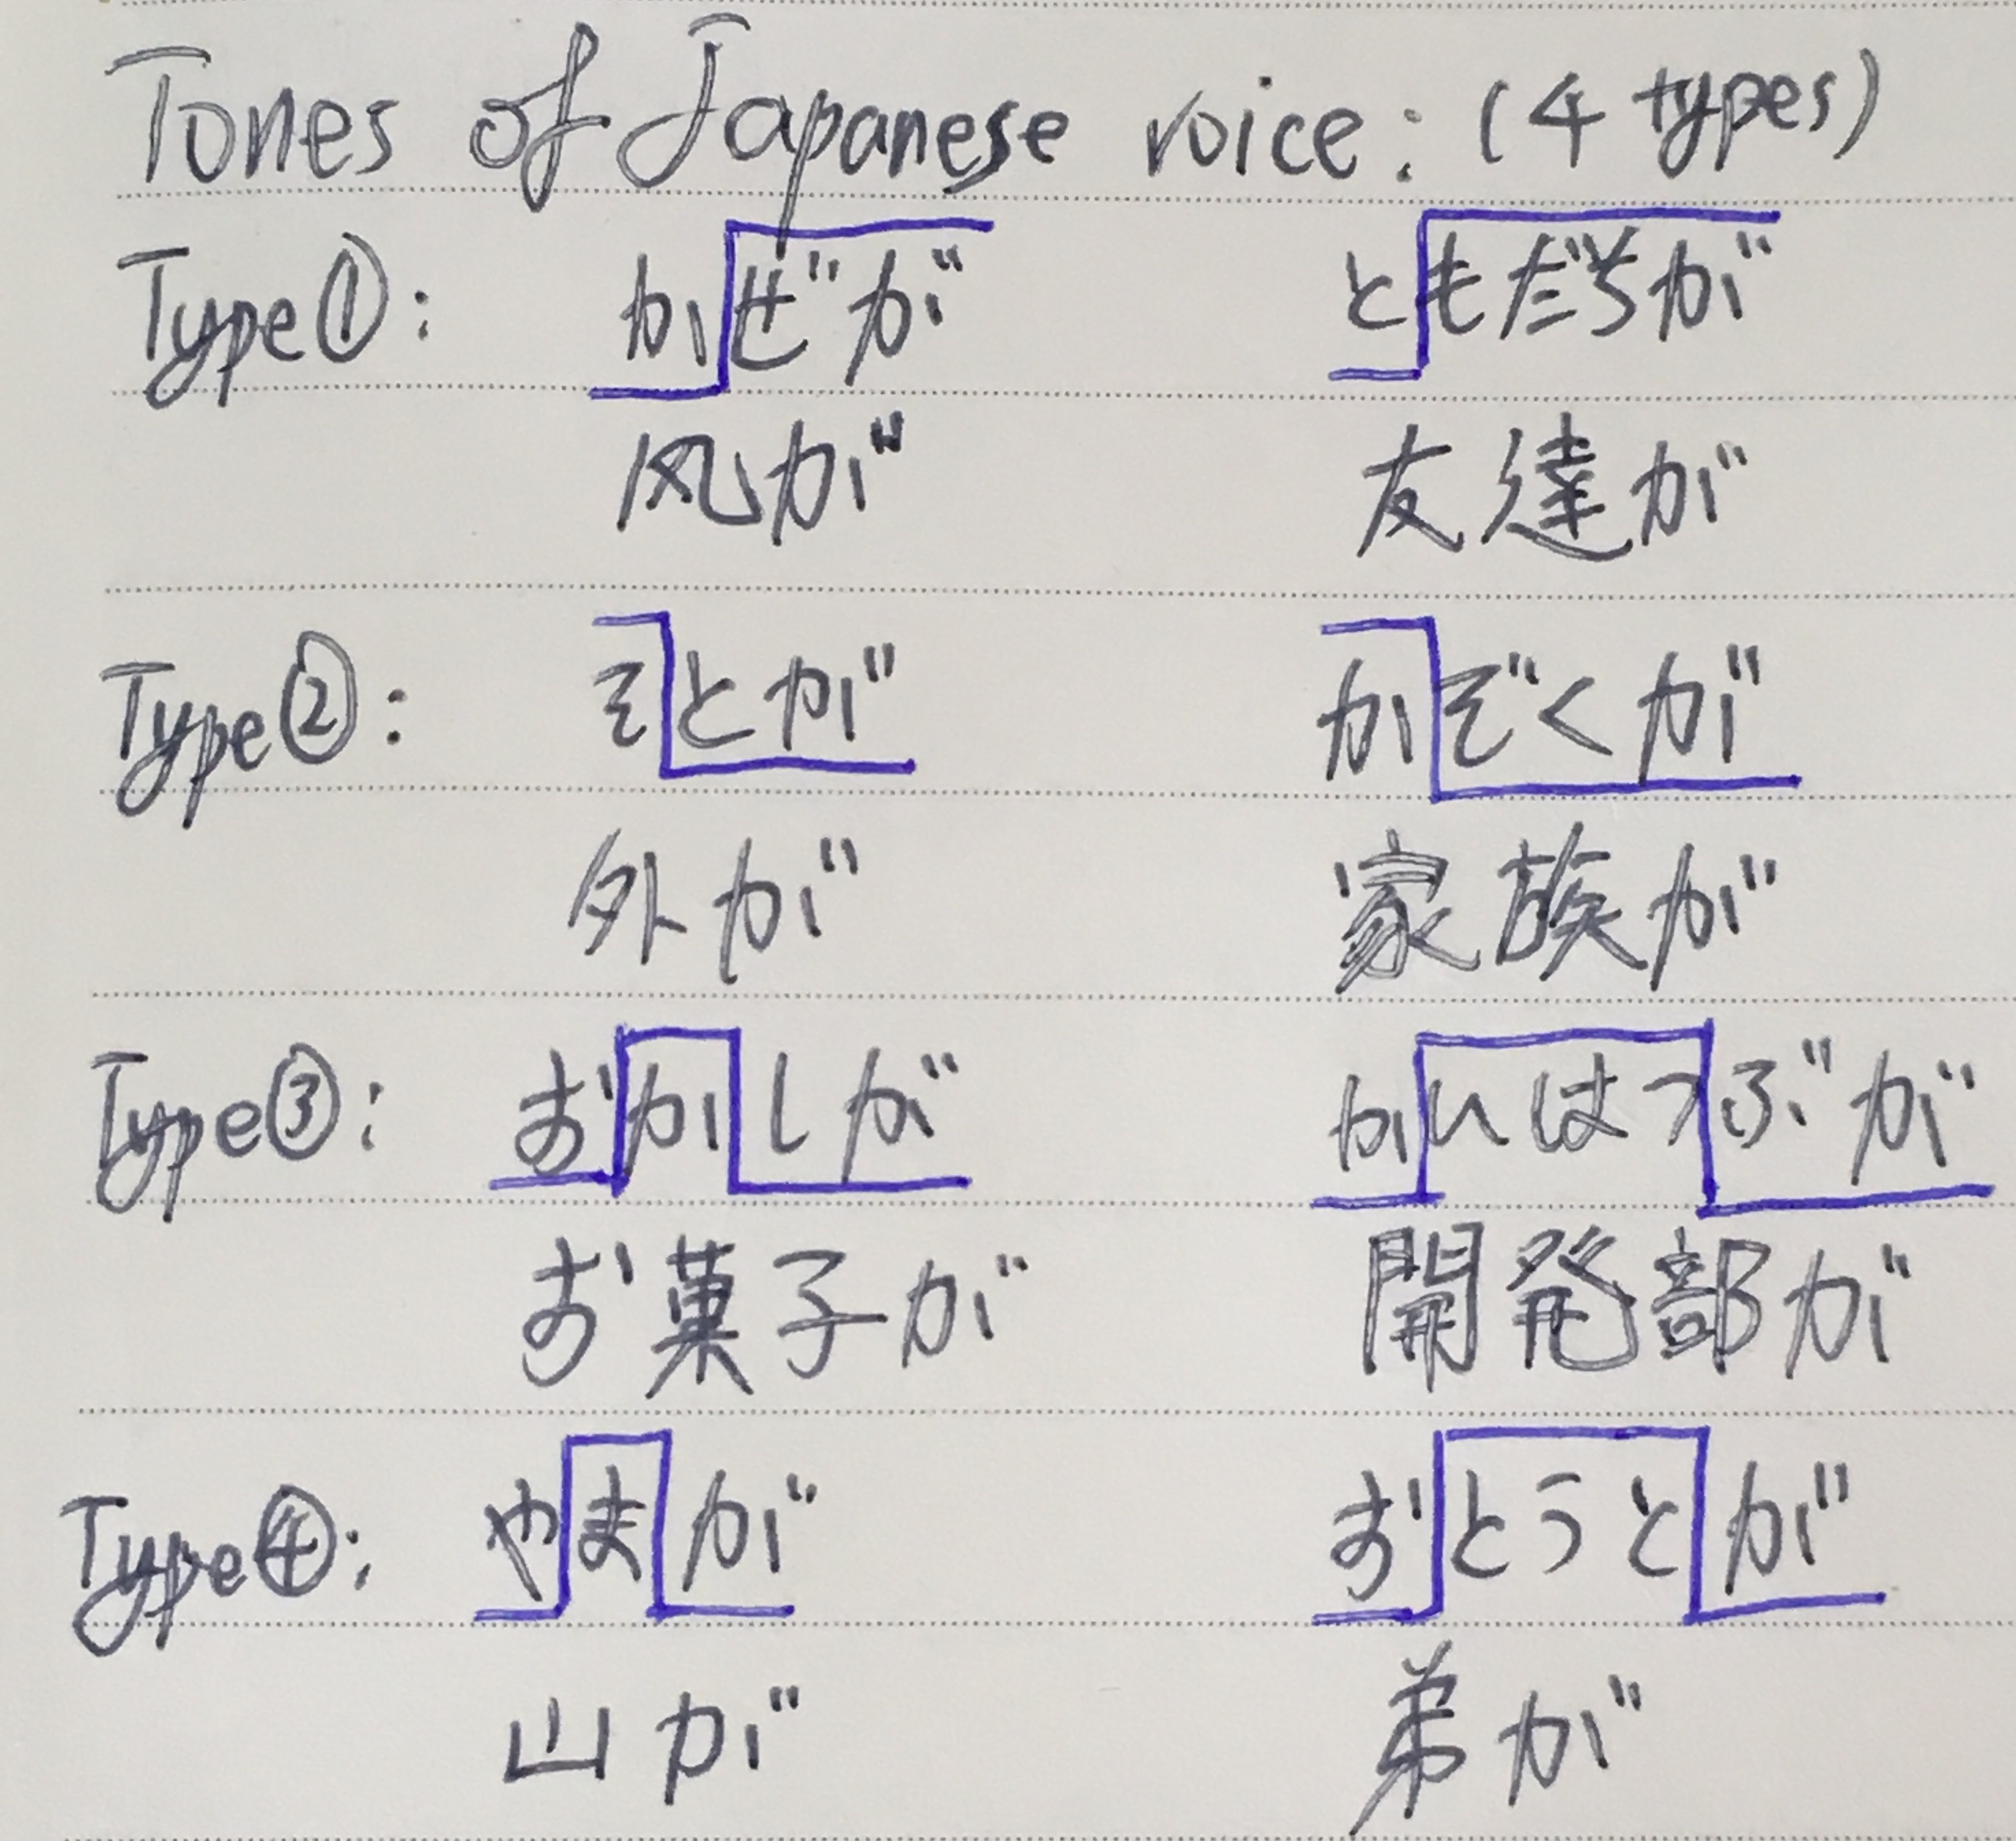 Tones of Japanese voice: (4 types)
Type①: かぜが ともだちが
風が 友達が
Type②: そとが かぞくが
外が 家族が
Type③: おかしが かいはつぶが
お菓子が 開発部が
Type④: やまが おとうとが
山が 弟が